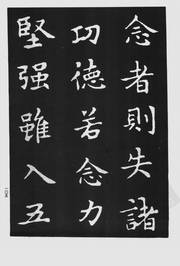 念者則失諸
功德若念力
堅强雖入五